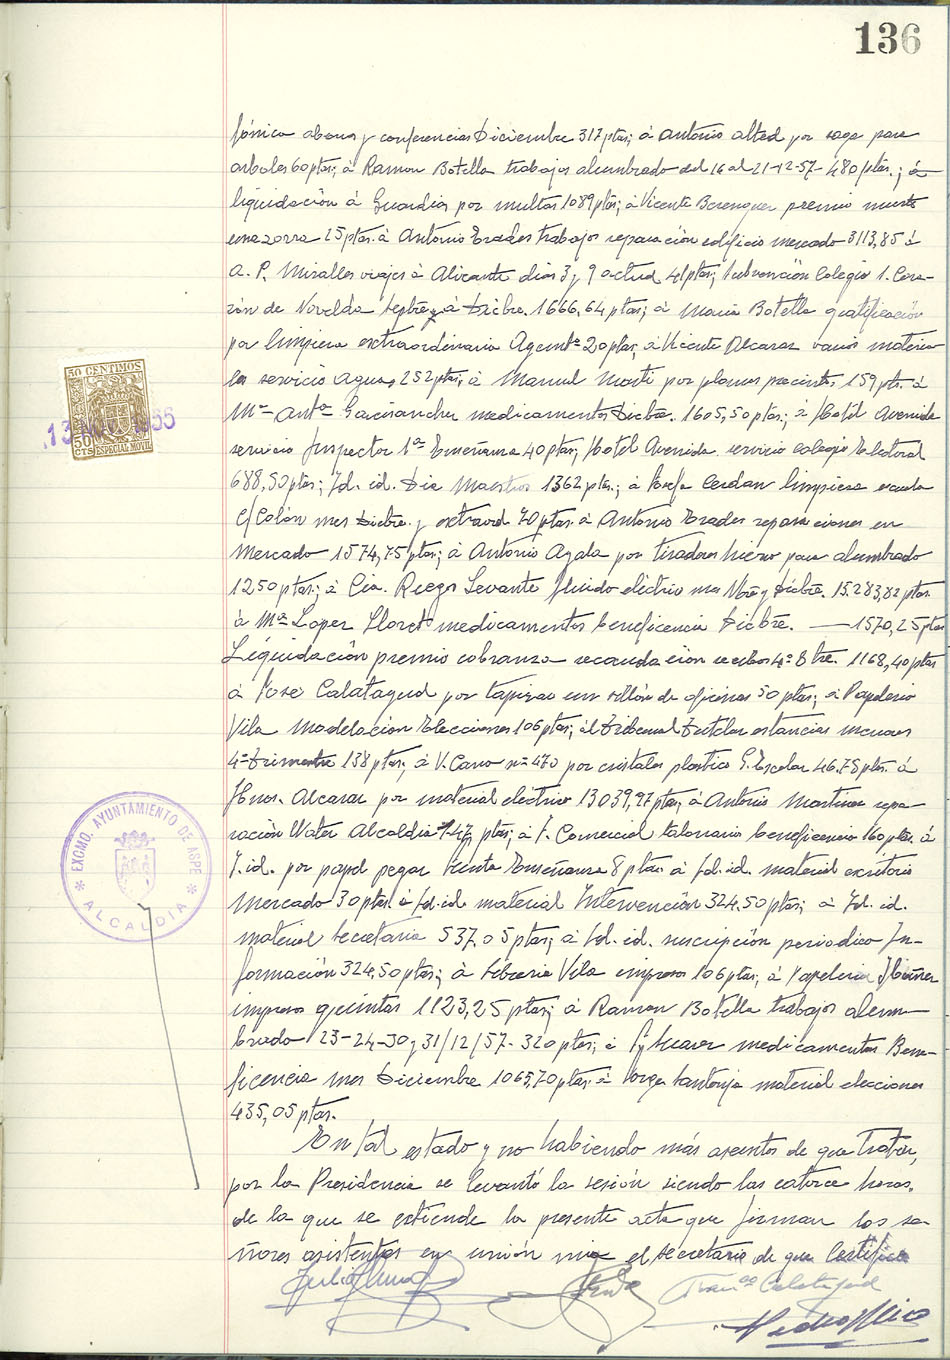 136
fónica abonos y conferencias Diciembre 317 ptas; á Antonio Alted por soga para
arboles 60 ptas; á Ramon Botella trabajos alumbrado del 16 al 21-12-57- 480 ptas.; á
liquidación á Guardias por multas 1089 ptas; á Vicente Berenguer premio muerte
una zorra 25 ptas. á Antonio Prades trabajos reparación edificio mercado 3113,85 á
A. P. Miralles viajes á Alicante dias 3 y 9 actual 41 ptas; subvención Colegio S. Cora-
zón de Novelda septbre. á Dicbre. 1666,64 ptas; á Maria Botella gratificación
por limpieza extraordinaria Ayunt.º 20 ptas; á Vicente Alcaraz varios materia-
les servicio aguas 252 ptas; á Manuel Marti por plomos precintos 159 ptas. á
Mª Antª Garcisanchez medicamentos Dicbre. 1605,50 ptas; á Hotel Avenida
servicio Inspector 1ª Enseñanza 40 ptas; Hotel Avenida servicio colegio Electoral
688,50 ptas; Id. id. Dia Maestro 1362 ptas.; á Josefa Cerdan limpieza escuela
C/ Colón mes Dicbre. y extraord. 70 ptas. á Antonio Prades reparaciones en
Mercado 1574,75 ptas; á Antonio Ayala por tiradores hierro para alumbrado
1250 ptas; á Cia. Riegos Levante fluido electrico mes Nbre y Dicbre. 15.283,82 ptas.
á Mª Lopez Lloret medicamentos beneficencia Dicbre. — 1570,25 ptas
Liquidación premio cobranza recaudación recibos 4º Btre. 1168,40 ptas
á Jose Calatayud por tapizar un sillón de oficinas 50 ptas; á Papeleria
Vila modelacion Elecciones 106 ptas; al Tribunal Tutelar estancias menores
4º Trimestre 138 ptas; á V. Cano nº 470 por cristales plastico G. Escolar 46.75 ptas. á
Hnos. Alcaraz por material electrico 13039,97 ptas; á Antonio Martinez repa-
ración Water Alcaldia 147 ptas; á I. Comercial talonario beneficencia 160 ptas. á
I. id. por papel pegar Junta Enseñanza 8 ptas. á Id. id. material escritorio
Mercado 30 ptas. á Id. id. material Intervención 324.50 ptas; á Id. id.
material Secretaria 537.05 ptas; á Id. id. suscripción periodico In-
formación 324,50 ptas; á Libreria Vila impresos 106 ptas; á Papeleria
impresos quintas 1123,25 ptas; á Ramon Botella trabajos alum-
brado 23-24-30 y 31/12/57- 320 ptas; á medicamentos Bene-
ficencia mes Diciembre 1065,70 ptas. á Jorge Santonja material elecciones
435,05 ptas.
En tal estado y no habiendo más asuntos de que tratar,
por la Presidencia se levantó la sesión siendo las catorce horas,
de la que se extiende la presente acta que firman los se-
ñores asistentes en unión mia el Secretario de que Certifico
Franco Calatayud
50 CENTIMOS
50 CTS ESPECIAL MOVIL
EXCMO. AYUNTAMIENTO DE ASPE
* ALCALDÍA *